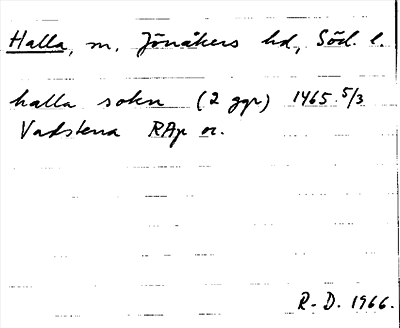 Halla, sn, Jönåkers hd, Söd. l.
halla sokn (2 ggr) 1465 5/3
Vadstena RAp or.
R-D. 1966.